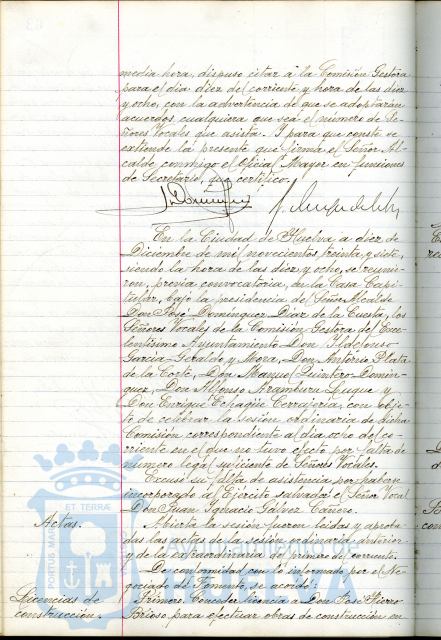 media hora, dispuso citar á la Comisión Gestora
para el dia diez del corriente y hora de las diez
y ocho, con la advertencia de que se adoptarán
acuerdos cualquiera que sea el número de Se-
ñores Vocales que asista. Y para que conste se
extiende la presente que firma el Señor Al-
calde conmigo el Oficial Mayor en funciones
de Secretario, que certifico.
En la Ciudad de Huelva a diez de
Diciembre de mil novecientos treinta y siete,
siendo la hora de las diez y ocho, se reunie-
ron, previa convocatoria, en la Casa Capi-
tular, bajo la presidencia del Señor Alcalde
Don José Domínguez Diaz de la Cuesta, los
Señores Vocales de la Comisión Gestora del Exce-
lentísimo Ayuntamiento Don Ildefonso
Garcia-Geraldo y Mora, Don Antonio Plata
de la Corte, Don Manuel Quintero Domín-
guez, Don Alfonso Aramburu Luque y
Don Enrique Echagüe Cerrajeria, con obje-
to de celebrar la sesión ordinaria de dicha
Comisión correspondiente al dia ocho del co-
rriente en el que no tuvo efecto por falta de
número legal suficiente de Señores Vocales.
Excusó su falta de asistencia por haberse
incorporado al Ejército salvador el Señor Vocal
Don Juan Ignacio Gálvez Cañero.
Actas. Abierta la sesión fueron leidas y aproba-
das las actas de la sesión ordinaria anterior
y de la extraordinaria de primero del corriente.
De conformidad con lo informado por el Ne-
gociado de Fomento, se acordó:
Licencias de Primero. Conceder licencia a Don José Fierro
construcción. Brioso para efectuar obras de construcción en
PORTUS MARIS ET TERRÆ